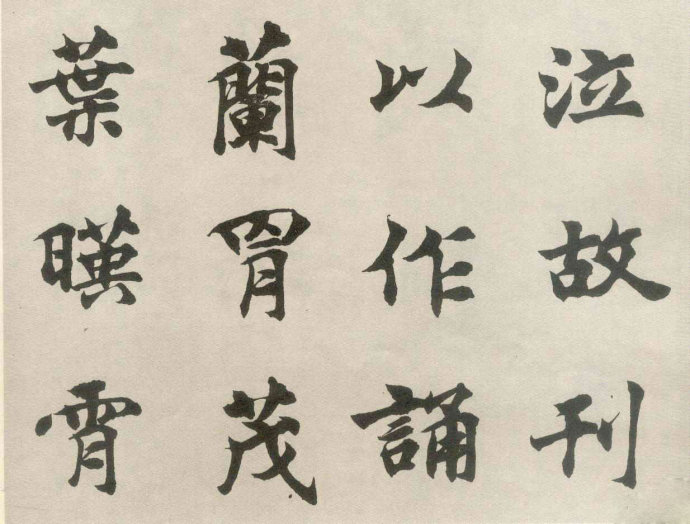 泣故刊
以作誦
蘭胃茂
葉暎霄